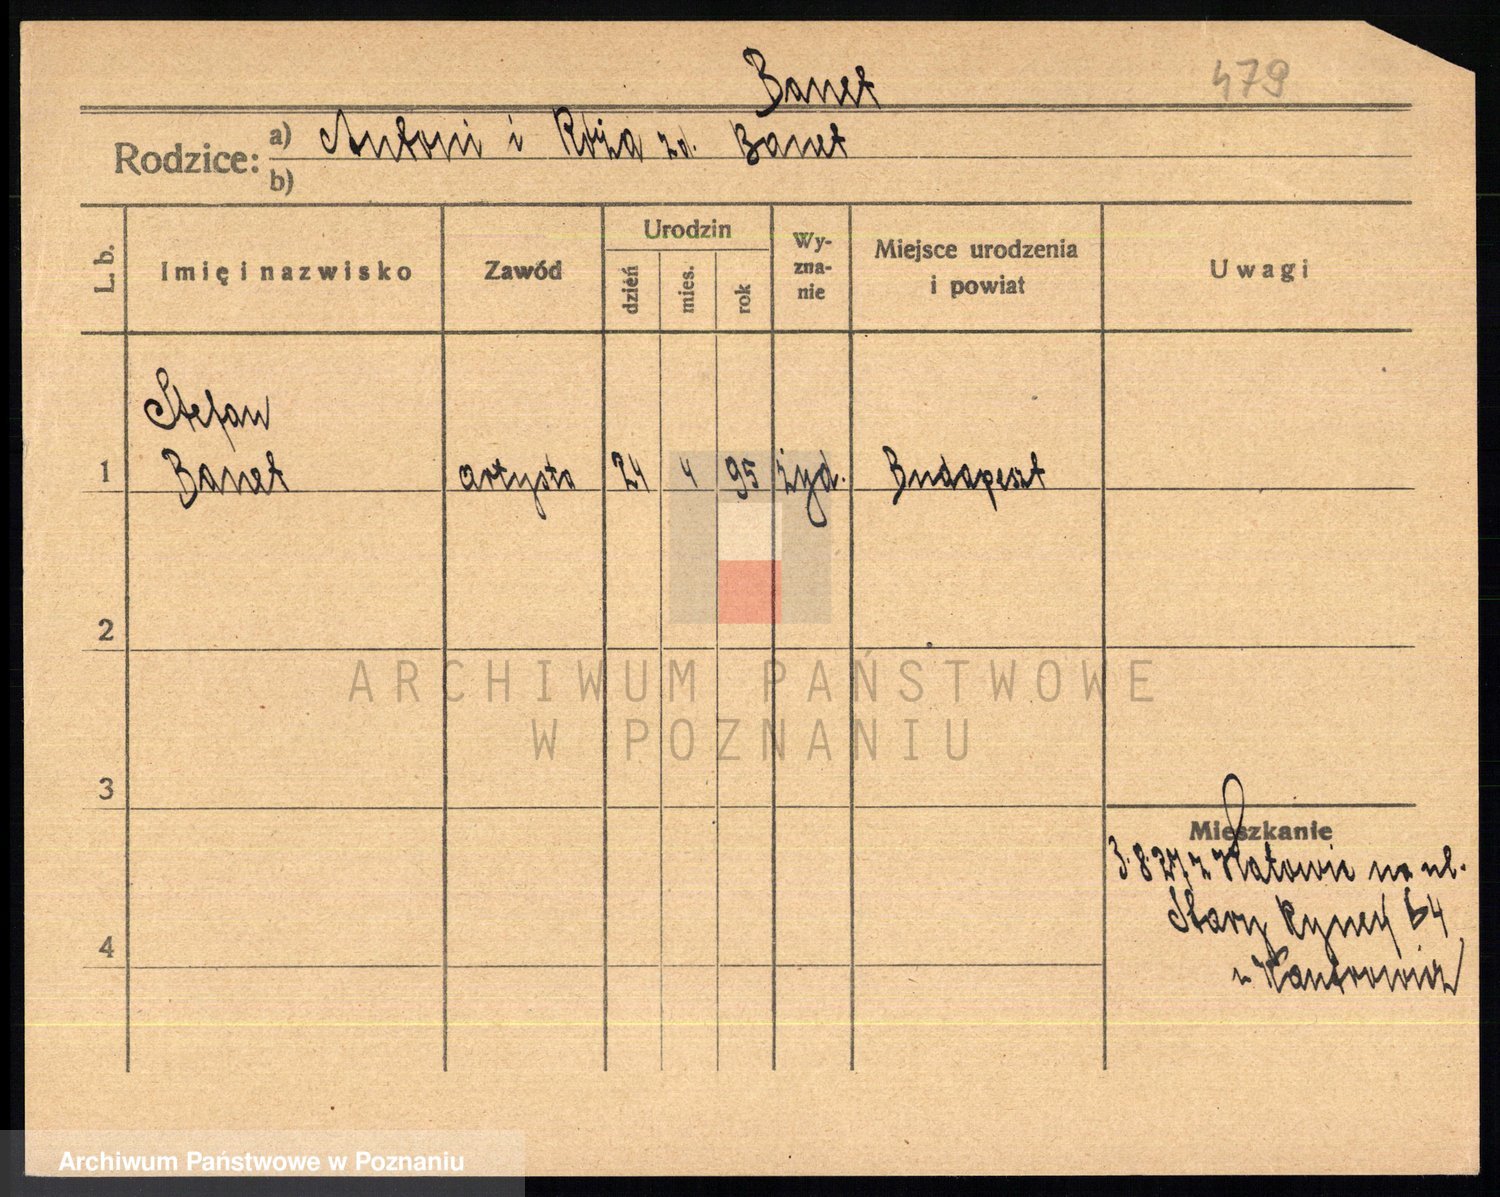 Banet
479
Rodzice:
a) Antoni i Róża zd. Banet
b)
L. b.
Imię i nazwisko
Zawód
Urodzin
dzień
mies.
rok
Wy-
zna-
nie
Miejsce urodzenia
i powiat
Uwagi
Stefan
1 Banet artysta 24 4 95 żyd. Budapeszt
2
ARCHIWUM PAŃSTWOWE
W POZNANIU
3
Mieszkanie
3.8.27 z Katowic na ul.
Stary Rynek 64
4
u Kantrowicz
Archiwum Państwowe w Poznaniu